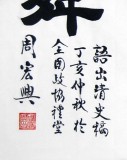 語出清史稿
丁亥仲秋於
全国政協禮堂
周宏興